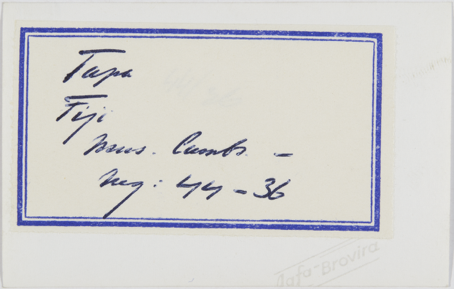 Tapa
Fiji
Mus. Camb. –
Neg: 44 – 36
Agfa-Brovira